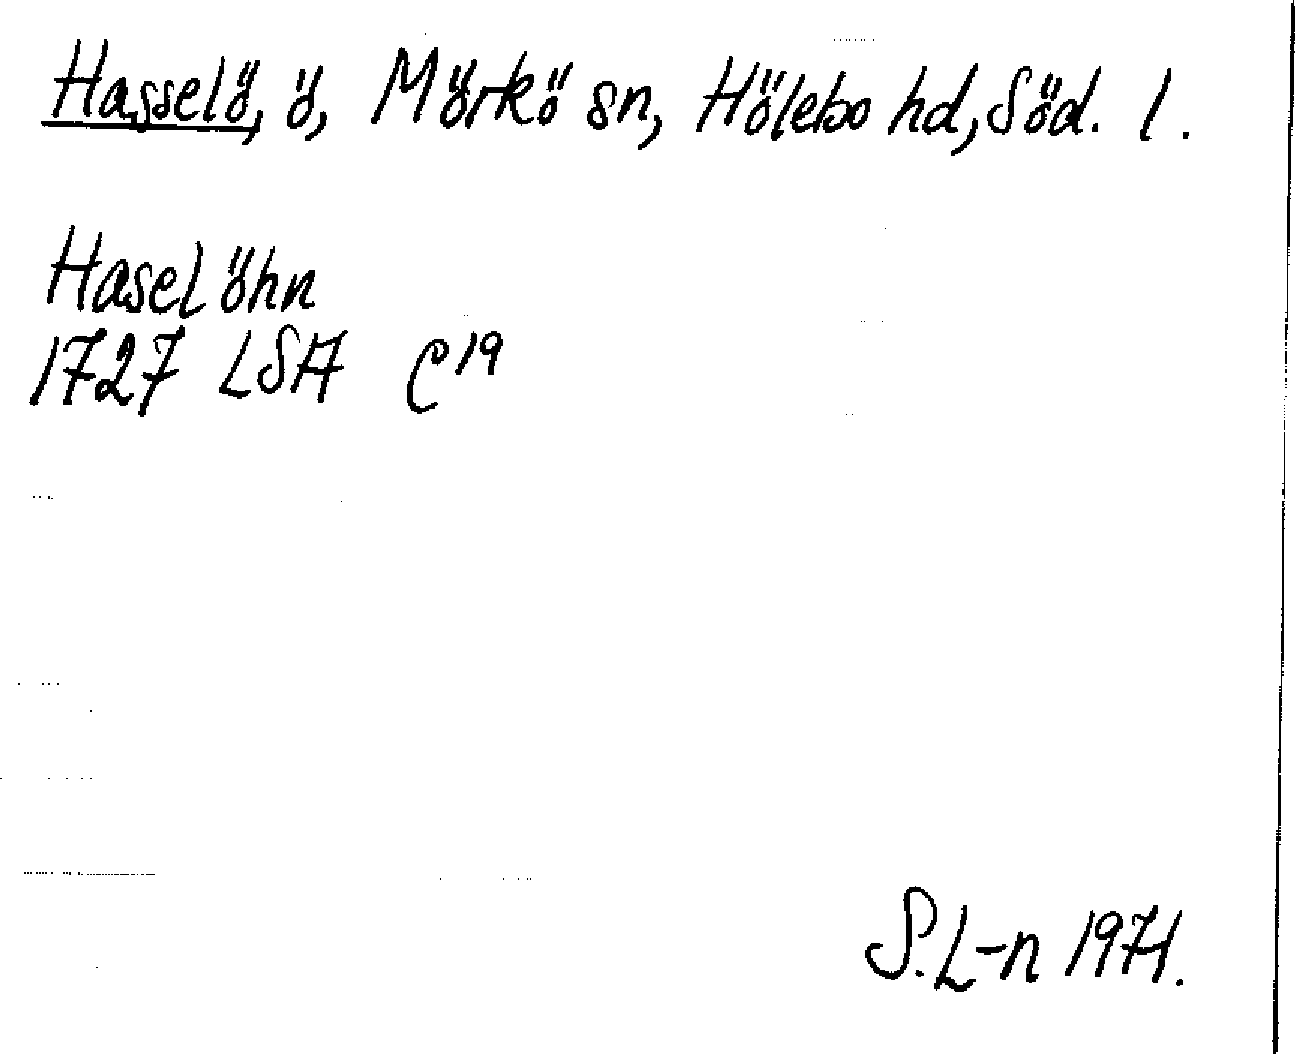 Hasselö, ö, Mörkö sn, Hölebo hd, Söd. l.
Haselöhn
1727 LSA C19
S. L-n 1971.